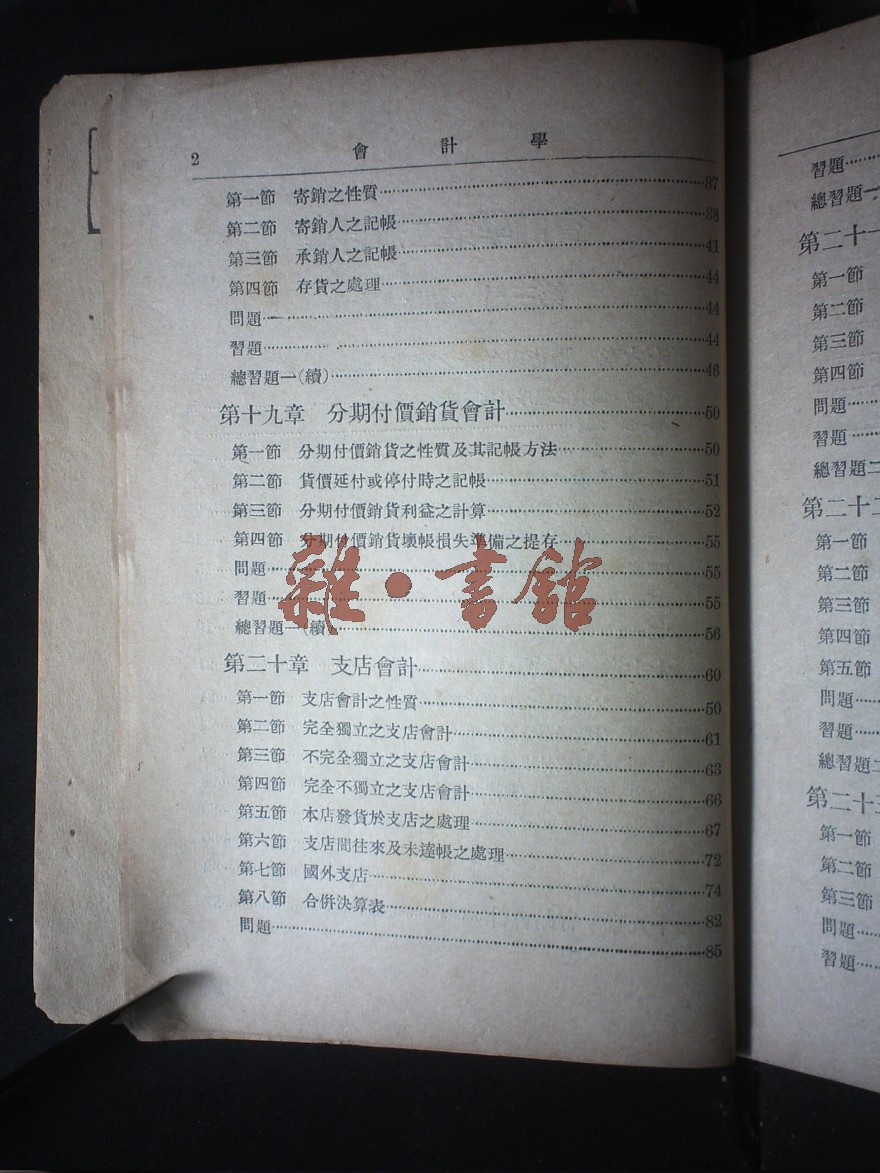 2 會計學
第一節 寄銷之性質……37
第二節 寄銷人之記帳……38
第三節 承銷人之記帳……41
第四節 存貨之處理……44
問題……44
習題……44
總習題一(續)……46
第十九章 分期付價銷貨會計……50
第一節 分期付價銷貨之性質及其記帳方法……50
第二節 貨價延付或停付時之記帳……51
第三節 分期付價銷貨利益之計算……52
第四節 分期付價銷貨壞帳損失準備之提存……55
問題……55
習題……55
總習題一(續)……56
第二十章 支店會計……60
第一節 支店會計之性質……50
第二節 完全獨立之支店會計……61
第三節 不完全獨立之支店會計……63
第四節 完全不獨立之支店會計……66
第五節 本店發貨於支店之處理……67
第六節 支店間往來及未達帳之處理……72
第七節 國外支店……74
第八節 合併決算表……82
問題……85
雜·書館
習題……
總習題一
第二十一
第一節
第二節
第三節
第四節
問題……
習題……
總習題二
第二十二
第一節
第二節
第三節
第四節
第五節
問題……
習題……
總習題二
第二十三
第一節
第二節
第三節
問題……
習題……